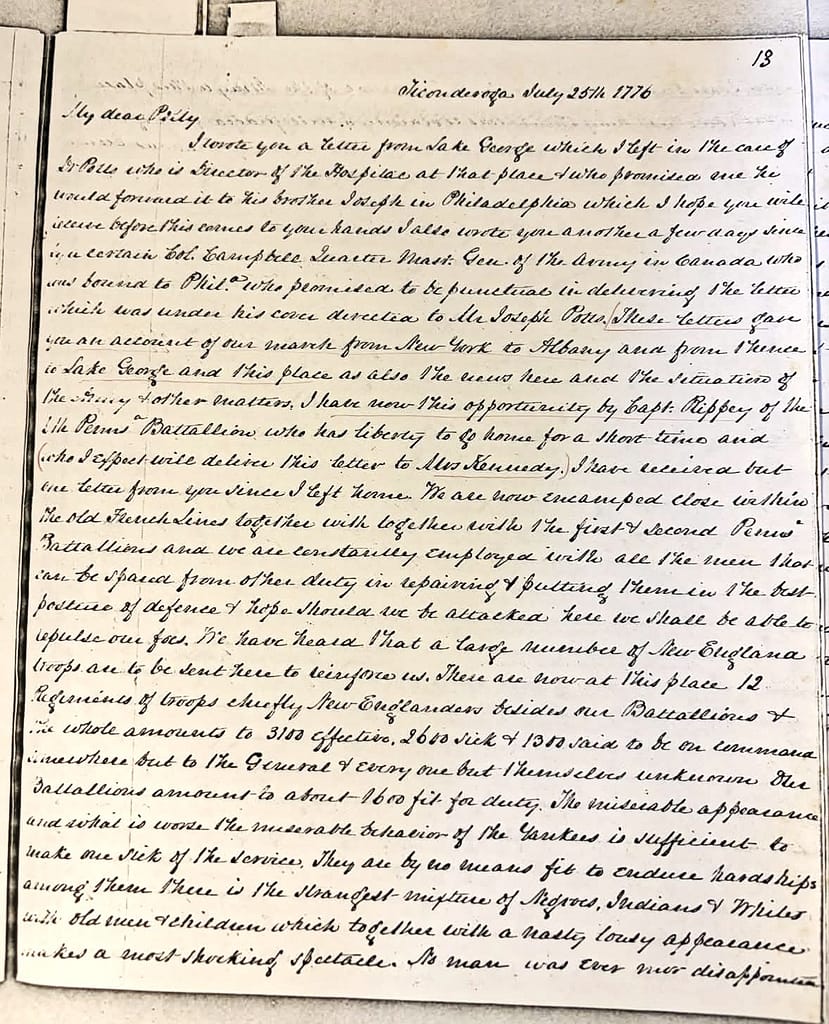 13
Ticonderoga July 25th 1776
My dear Polly
I wrote you a letter from Lake George which I left in the care of
Dr Potts who is Director of the Hospital at that place & who promised me he
would forward it to his brother Joseph in Philadelphia which I hope you will
receive before this comes to your hands I also wrote you another a few days since
by a certain Col. Campbell Quarter Mast. Gen. of the Army in Canada who
was bound to Phil.a who promised to be punctual in delivering the letter
which was under his cover directed to Mr Joseph Potts. (These letters gave
you an account of our march from New York to Albany and from thence
to Lake George and this place as also the news here and the situation of
the Army & other matters. I have now this opportunity by Capt. Rippey of the
6th Penns.a Battallion who has liberty to go home for a short time and
(who I expect will deliver this letter to Mrs Kennedy.) I have received but
one letter from you since I left home. We are now encamped close within
the old French Lines together with together with the first & second Penns.a
Battallions and we are constantly employed with all the men that
can be spared from other duty in repairing & putting them in the best
posture of defence & hope should we be attacked here we shall be able to
repulse our foes. We have heard that a large number of New England
troops are to be sent here to reinforce us. There are now at this place 12
Regiments of troops chiefly New Englanders besides our Battallions &
the whole amounts to 3100 effective, 2600 sick & 1300 said to be on command
somewhere but to the General & every one but themselves unknown Our
Battallions amount to about 1600 fit for duty. The miserable appearance
and what is worse the miserable behavior of the Yankees is sufficient to
make one sick of the service. They are by no means fit to endure hardships
among them there is the strangest mixture of Negroes, Indians & Whites
with old men & children which together with a nasty lousy appearance
makes a most shocking spectacle. No man was ever mor disappointed